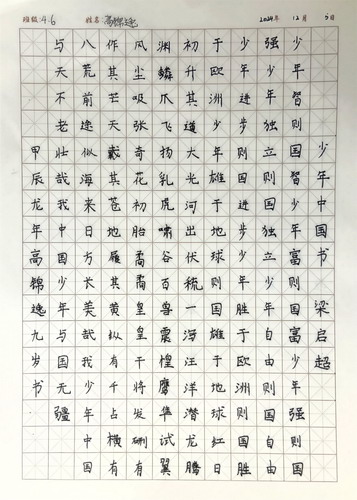 班级:4.6 姓名:高锦逸 2024年 12月 5日
少年中国书 梁启超
少年智则国智少年富则国富少年强则国
强少年独立则国独立少年自由则国自由
少年进步则国进步少年胜于欧洲则国胜
于欧洲少年雄于地球则国雄于地球红日
初升其道大光河出伏流一泻汪洋潜龙腾
渊鳞爪飞扬乳虎啸谷百兽震惶鹰隼试翼
风尘吸张奇花初胎矞矞皇皇干将发硎有
作其芒天戴其苍地履其黄纵有千古横有
八荒前途似海来日方长美哉我少年中国
与天不老壮哉我中国少年与国无疆
甲辰龙年高锦逸九岁书